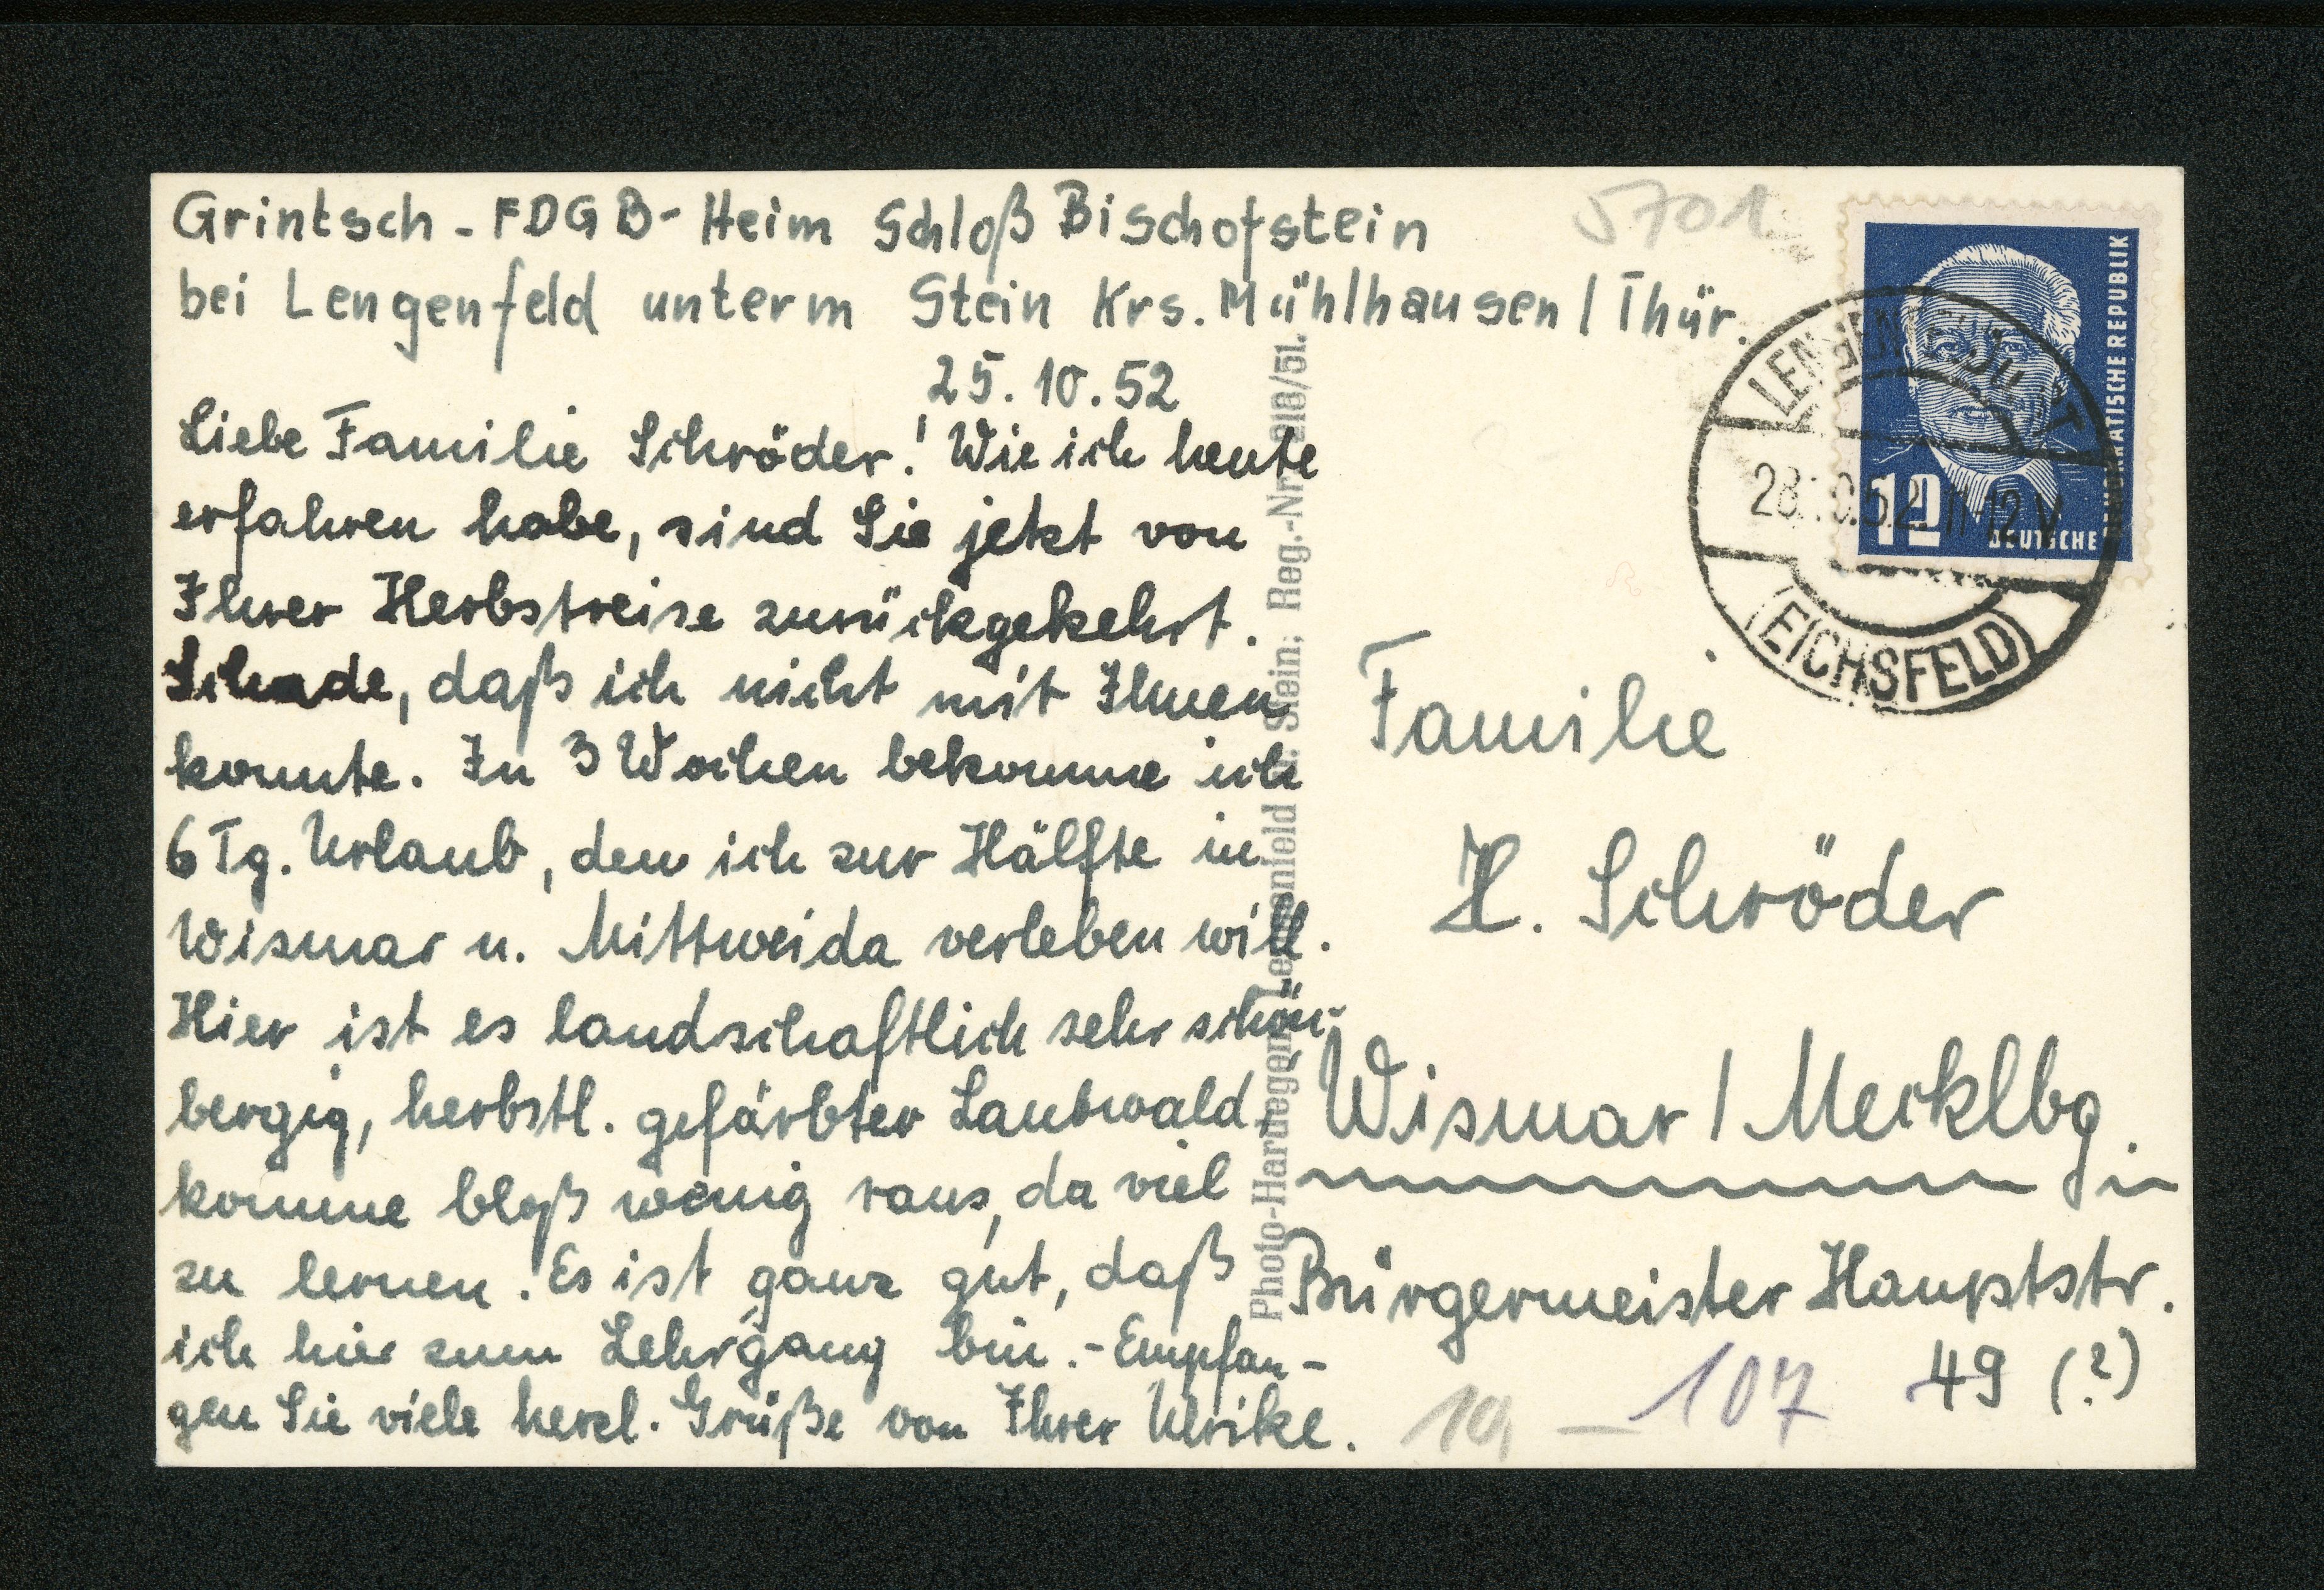 Grintsch - FDGB- Heim Schloß Bischofstein
bei Lengenfeld unterm Stein Krs. Mühlhausen / Thür.
25. 10. 52
Liebe Familie Schröder! Wie ich heute
erfahren habe, sind Sie jetzt von
Ihrer Herbstreise zurückgekehrt.
Schade, daß ich nicht mit Ihnen
konnte. In 3 Wochen bekomme ich
6 Tg. Urlaub, den ich zur Hälfte in
Wismar u. Mittweida verleben will.
Hier ist es landschaftlich sehr schön-
bergig, herbstl. gefärbter Laubwald,
komme bloß wenig raus, da viel
zu lernen. Es ist ganz gut, daß
ich hier zum Lehrgang bin. - Empfan-
gen Sie viele herzl. Grüße von Ihrer Ulrike.
Photo-Hardegen, Lengenfeld u. Stein; Reg.-Nr. 218/51.
5701
DEUTSCHE DEMOKRATISCHE REPUBLIK
12
28.10.52 11-12V
(EICHSFELD)
Familie
H. Schröder
Wismar / Mecklbg.
in
Bürgermeister Hauptstr.
49 (?)
107